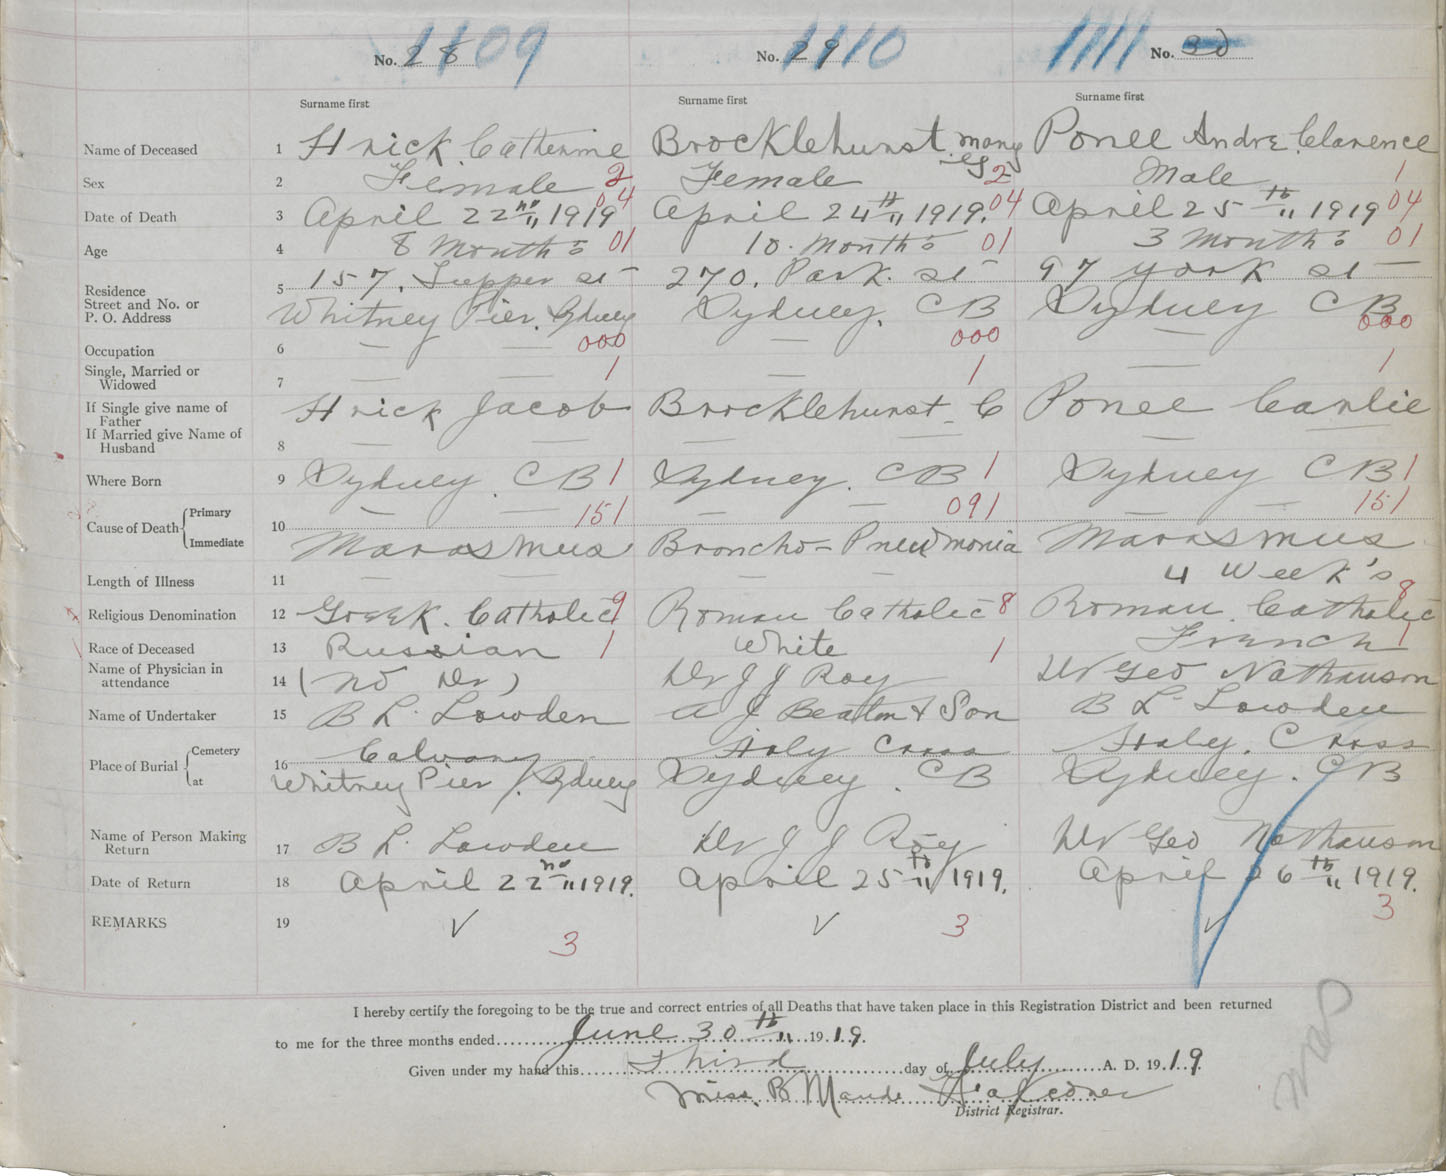 1109 1110 1111
No. 28 No. 29 No. 30
Surname first Surname first Surname first
Name of Deceased 1 Hrick Catherine Brocklehurst Mary Ponee Andre Clarence
Sex 2 Female 2 Female 2 Male 1
Date of Death 3 April 22nd 1919 04 April 24th 1919. 04 April 25th 1919 04
Age 4 8 Months 01 10. Months 01 3 Months 01
Residence Street and No. or P. O. Address 5 157. Tupper st 270. Park. st 97 York st
Whitney Pier. Sydney Sydney. CB Sydney CB
Occupation 6 — — 000 — 000 — 000
Single, Married or Widowed 7 — — 1 — 1 1
If Single give name of Father Hrick Jacob Brocklehurst C Ponee Carlie
If Married give Name of Husband 8 — — — — —
Where Born 9 Sydney. CB 1 Sydney. CB 1 Sydney CB 1
Cause of Death Primary 10 — — 151 — — 091 — — 151
Immediate Marasmus Broncho-Pneumonia Marasmus
Length of Illness 11 — — — — 4 Week's
Religious Denomination 12 Greek. Catholic 9 Roman Catholic 8 Roman Catholic 8
Race of Deceased 13 Russian 1 White 1 French 1
Name of Physician in attendance 14 (No Dr) Dr J J Roy Dr Geo Nathanson
Name of Undertaker 15 B L. Lowden A J Beaton & Son B L. Lowden
Place of Burial Cemetery 16 Calvary Holy Cross Holy. Cross
at Whitney Pier, Sydney Sydney. CB Sydney. CB
Name of Person Making Return 17 B L. Lowden Dr J J Roy Dr Geo Nathanson
Date of Return 18 April 22nd 1919. April 25th 1919. April 26th 1919.
REMARKS 19 ✓ 3 ✓ 3 ✓ 3
I hereby certify the foregoing to be the true and correct entries of all Deaths that have taken place in this Registration District and been returned
to me for the three months ended June 30th 1919.
Given under my hand this Third day of July A. D. 1919.
Miss. B Maude
District Registrar.